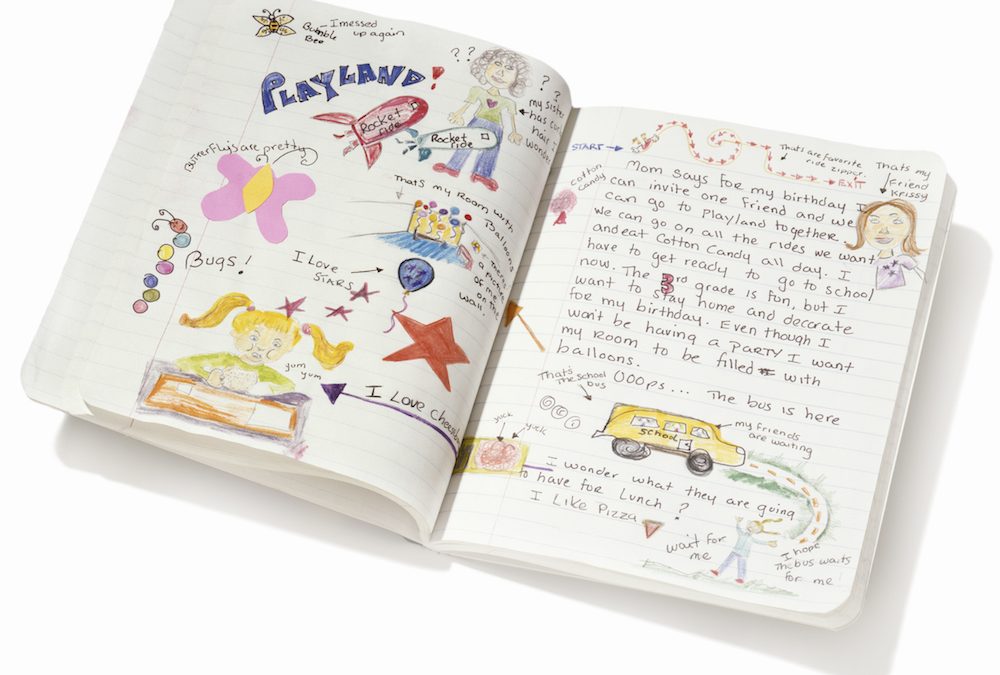 I messed
up again
Bumble
Bee
PLAYLAND!
? ?
? ?
Rocket
ride
Rocket
ride
my sister
has curly
hair I
wonder
ButterFlys are pretty
Thats my Room with
Balloons
Theres
a picture
of me
on the
wall.
Bugs!
I Love
STARS
yum
yum
I Love Cheese
START
Thats are favorite
ride zipper.
EXIT
Thats my
Friend
Krissy
Cotton
Candy
Mom says for my birthday I
can invite one Friend and we
can go to Playland together.
We can go on all the rides we want
and eat Cotton Candy all day. I
have to get ready to go to School
now. The 3rd grade is Fun, but I
want to stay home and decorate
for my birthday. Even though I
won't be having a PARTY I want
my room to be filled with
balloons.
That's
the school
bus
OOOps... The bus is here
SCHOOL
my friends
are waiting
yuck
yuck
I wonder what they are going
to have for Lunch?
I Like Pizza
wait for
me
I hope
the bus waits
for me!